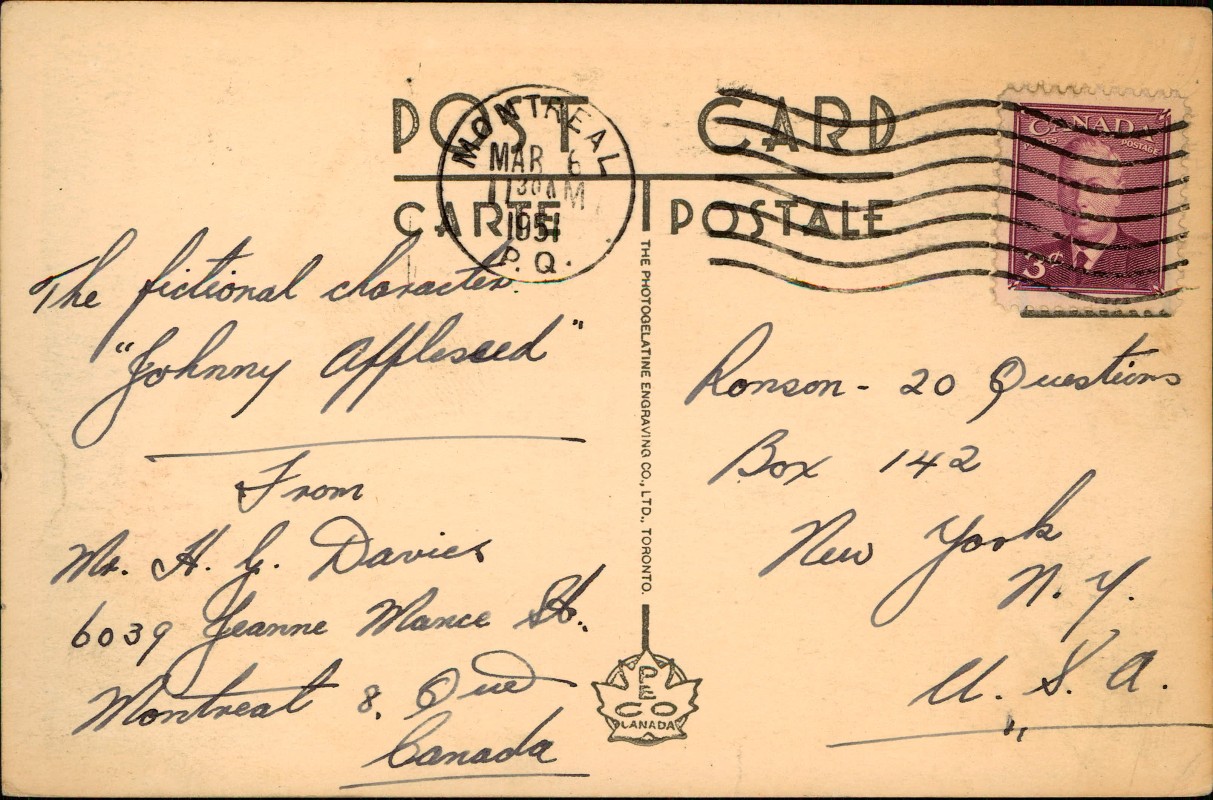 POST CARD
CARTE POSTALE
MONTREAL
MAR 6
11 30 AM
1951
P.Q.
CANADA
POSTES POSTAGE
3¢
The fictional character
"Johnny Appleseed"
From
Mr. H. G. Davies
6039 Jeanne Mance St.
Montreal 8. Que
Canada
THE PHOTOGELATINE ENGRAVING CO., LTD., TORONTO.
PECO
CANADA
Ronson - 20 Questions
Box 142
New York
N. Y.
U. S. A.